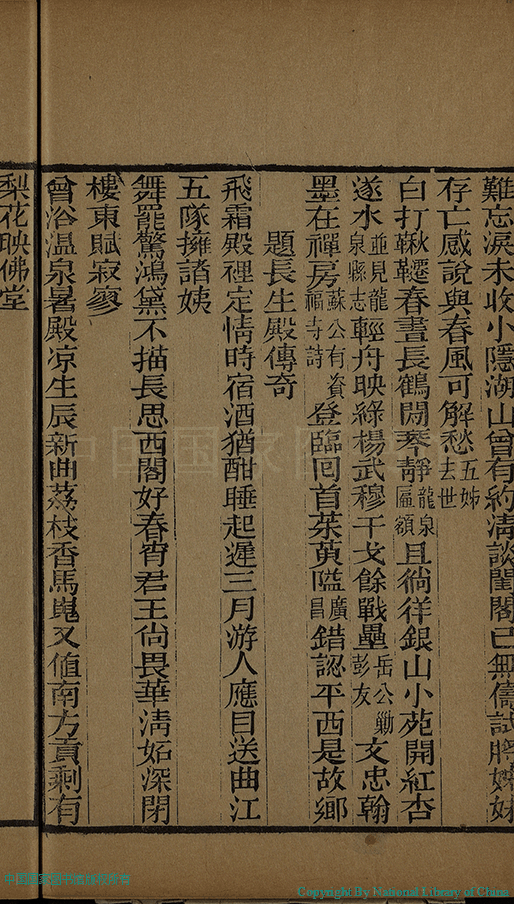 難忘淚未收小隱湖山曾有約淸談閨閣已無儔試將嫂妹
存亡感說與春風可解愁五姊去世
白打鞦韆春晝長鶴閒琴靜龍泉匾額且徜徉銀山小苑開紅杏
遂水並見龍泉縣志輕舟映綠楊武穆干戈餘戰壘岳公勦彭友文忠翰
墨在禪房蘇公有資福寺詩登臨回首茱萸隘廣昌錯認平西是故鄉
題長生殿傳奇
飛霜殿裡定情時宿酒猶酣睡起遲三月游人應目送曲江
五隊擁諸姨
舞罷驚鴻黛不描長思西閣好春宵君王尙畏華淸妬深閉
樓東賦寂寥
曾浴溫泉暑殿凉生辰新曲荔枝香馬嵬又値南方貢剩有
梨花映佛堂
中国国家图书馆
中国国家图书馆
Copyright By National Library of China